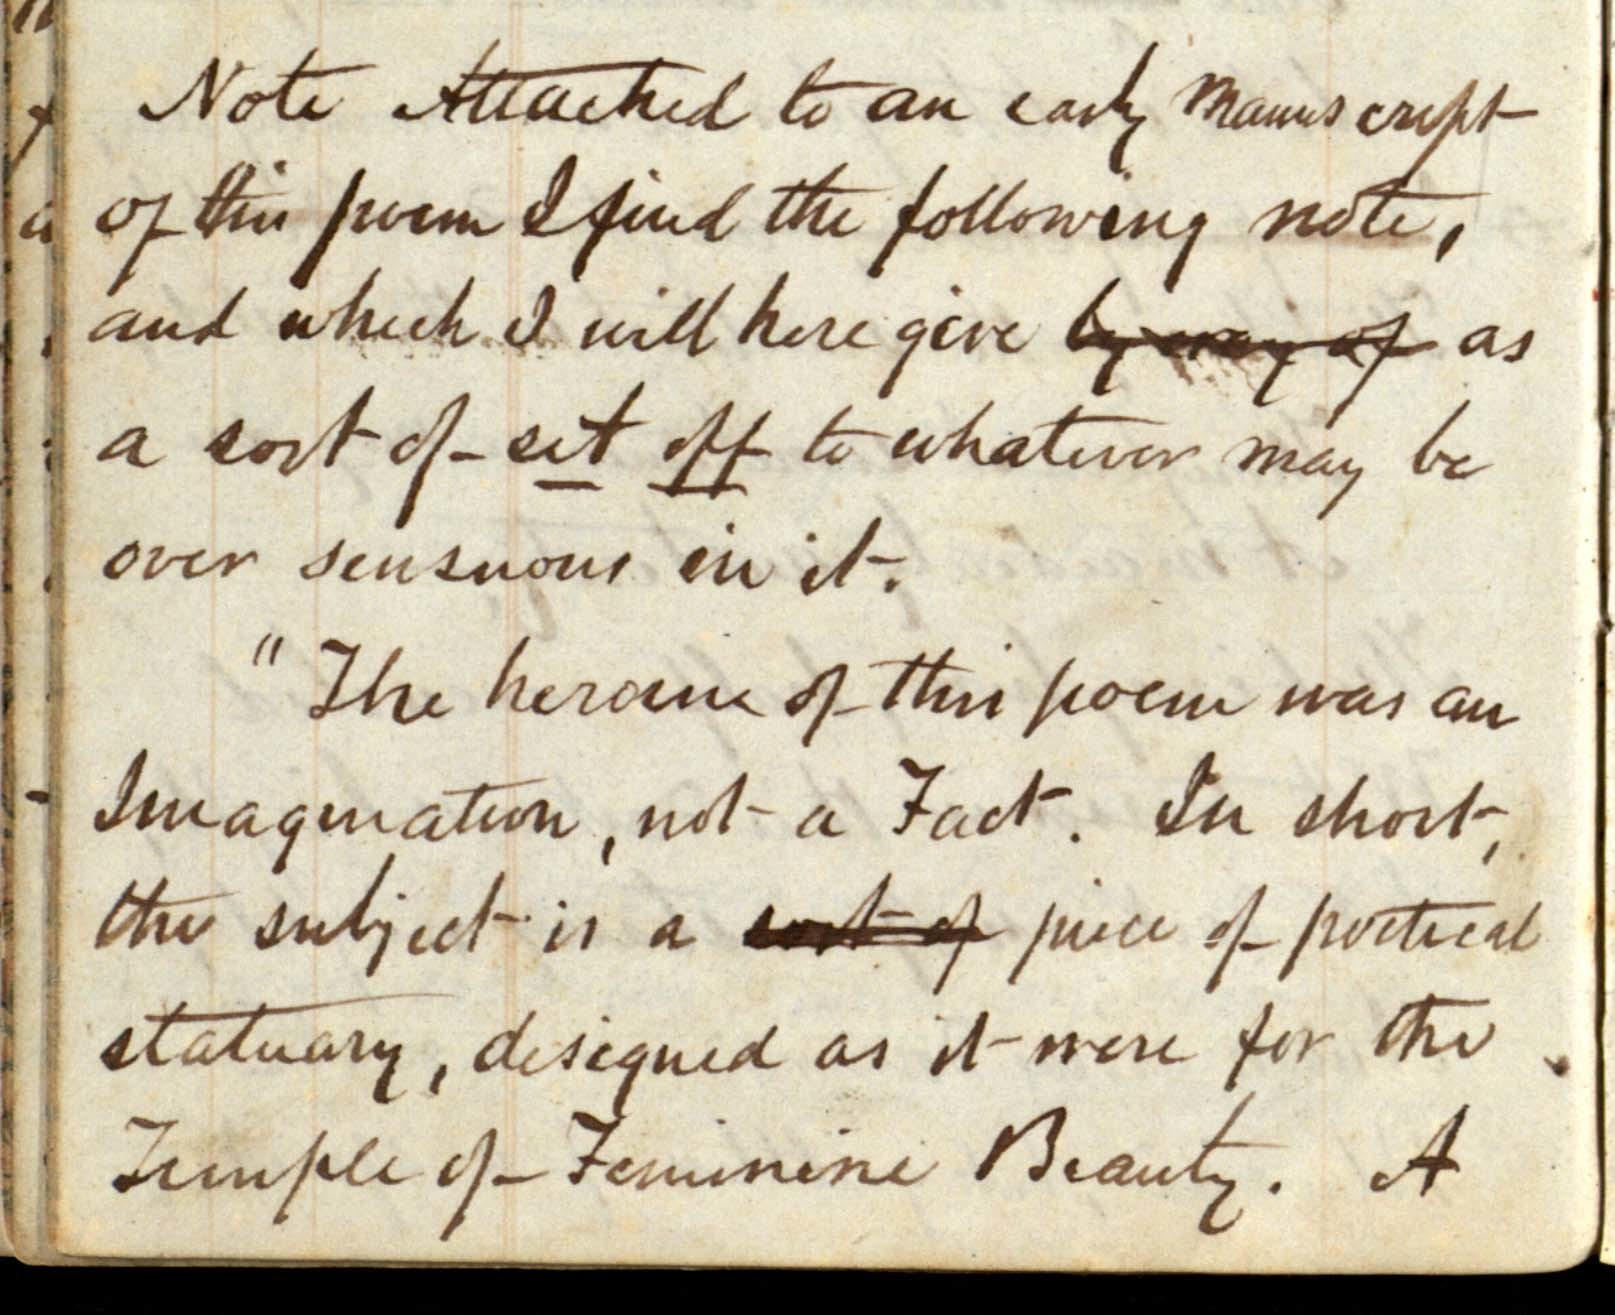 Note Attached to an early Manuscript
of this poem I find the following note,
and which I will here give by way of as
a sort of set off to whatever may be
over sensuous in it.
" The heroine of this poem was an
Imagination, not a Fact. In short,
the subject is a sort of piece of poetical
statuary, designed as it were for the
Temple of Feminine Beauty. A